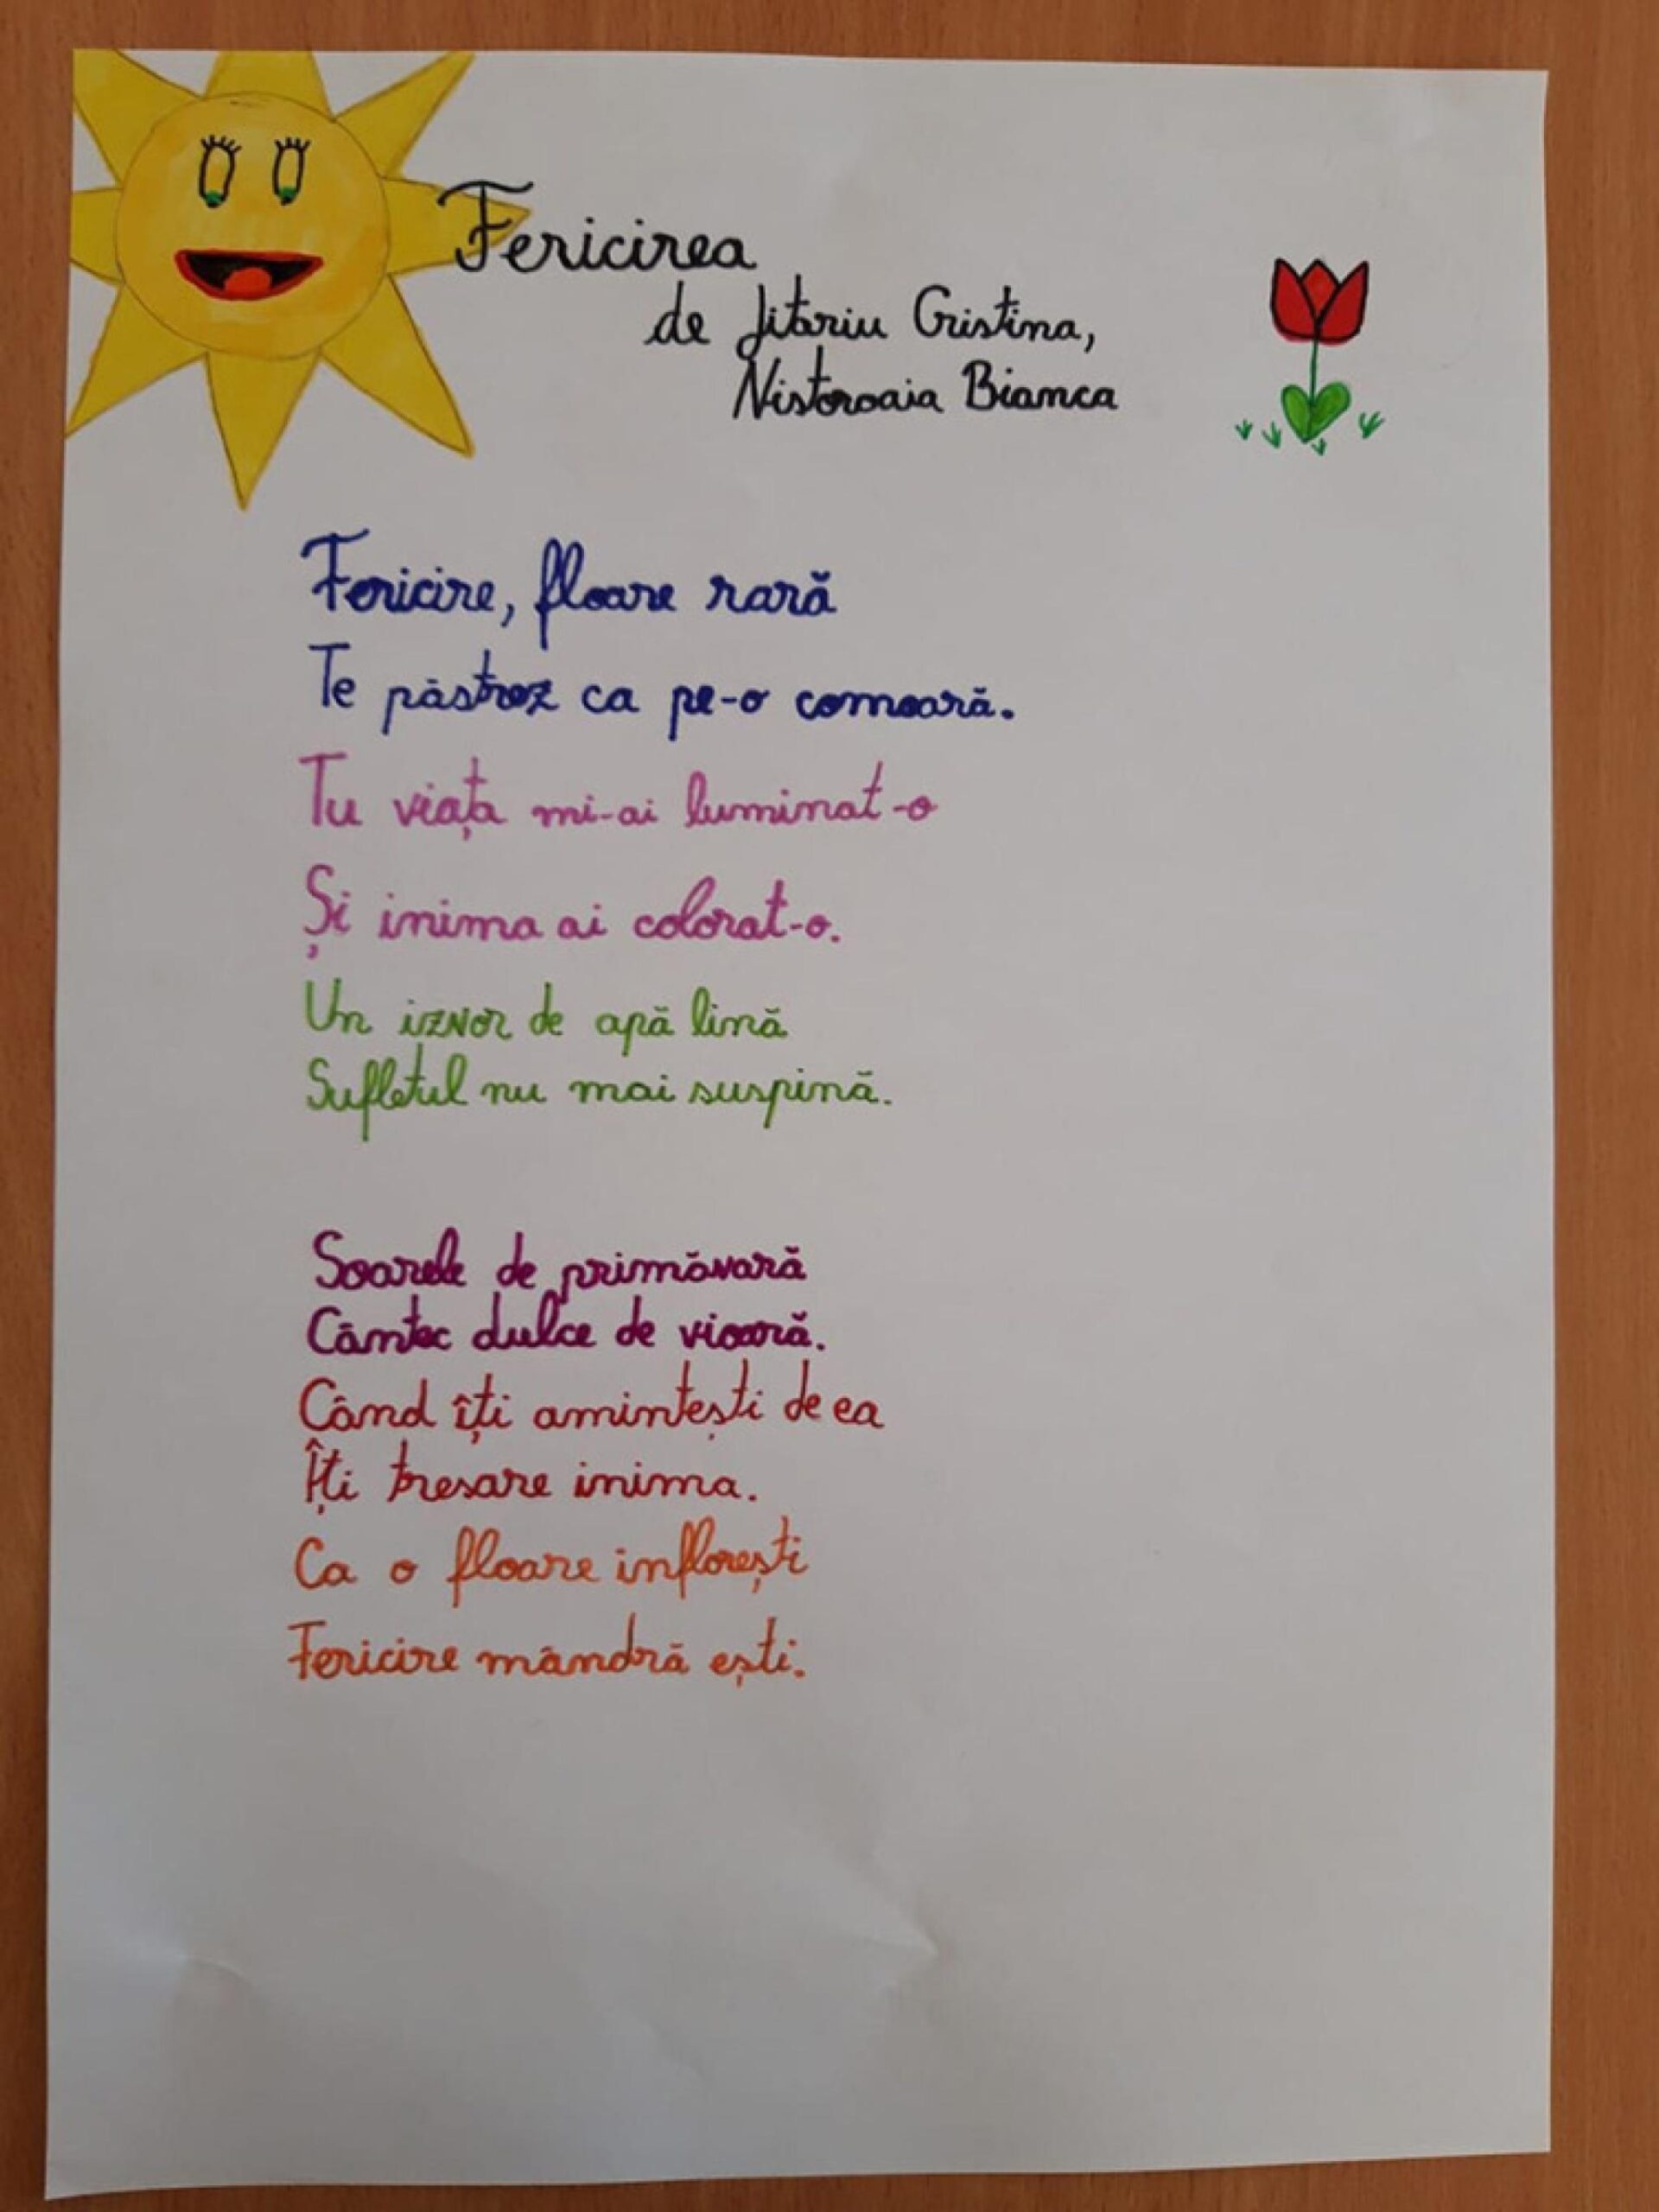 Fericirea
de Jitariu Cristina,
Nistoroaia Bianca
Fericire, floare rară
Te păstrez ca pe-o comoară.
Tu viața mi-ai luminat-o
Și inima ai colorat-o.
Un izvor de apă lină
Sufletul nu mai suspină.
Soarele de primăvară
Cântec dulce de vioară.
Când îți amintești de ea
Îți tresare inima.
Ca o floare inflorești
Fericire mândră ești.